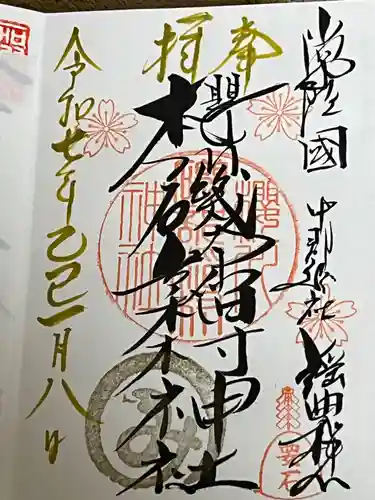 奉拝
常陸國
中郡総社
謡曲桜川
櫻川磯部稲村神社
令和七年乙巳一月八日
要石